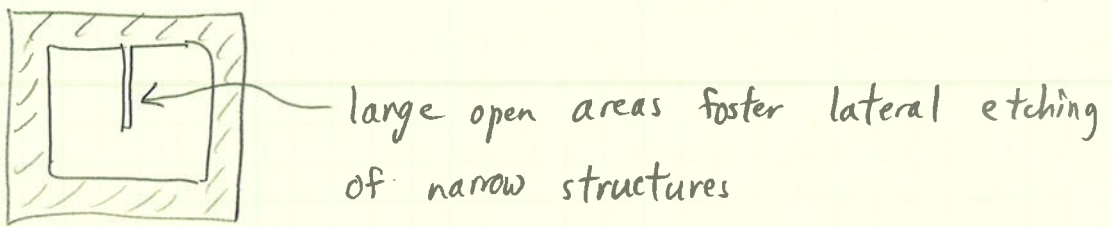 large open areas foster lateral etching
of narrow structures